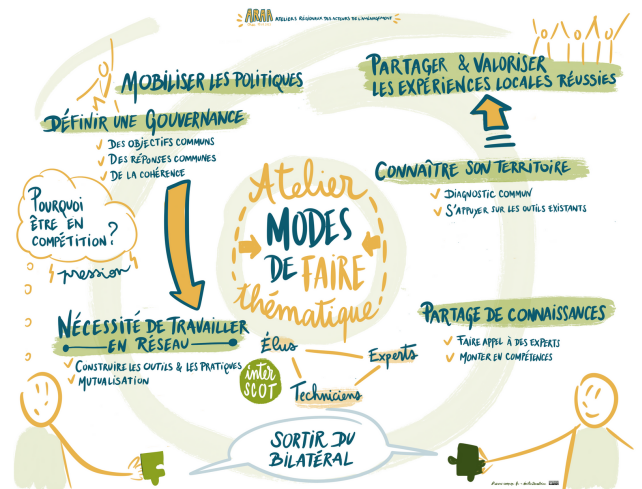 ARAA ATELIERS RÉGIONAUX DES ACTEURS DE L'AMÉNAGEMENT
MOBILISER LES POLITIQUES
DÉFINIR UNE GOUVERNANCE
DES OBJECTIFS COMMUNS
DES RÉPONSES COMMUNES
DE LA COHÉRENCE
POURQUOI
ÊTRE EN
COMPÉTITION?
pression
NÉCESSITÉ DE TRAVAILLER
EN RÉSEAU
CONSTRUIRE LES OUTILS & LES PRATIQUES
MUTUALISATION
Atelier
MODES
DE FAIRE
thématique
Élus
Experts
Techniciens
inter
SCOT
PARTAGER & VALORISER
LES EXPÉRIENCES LOCALES RÉUSSIES
CONNAÎTRE SON TERRITOIRE
DIAGNOSTIC COMMUN
S'APPUYER SUR LES OUTILS EXISTANTS
PARTAGE DE CONNAISSANCES
FAIRE APPEL À DES EXPERTS
MONTER EN COMPÉTENCES
SORTIR DU
BILATÉRAL